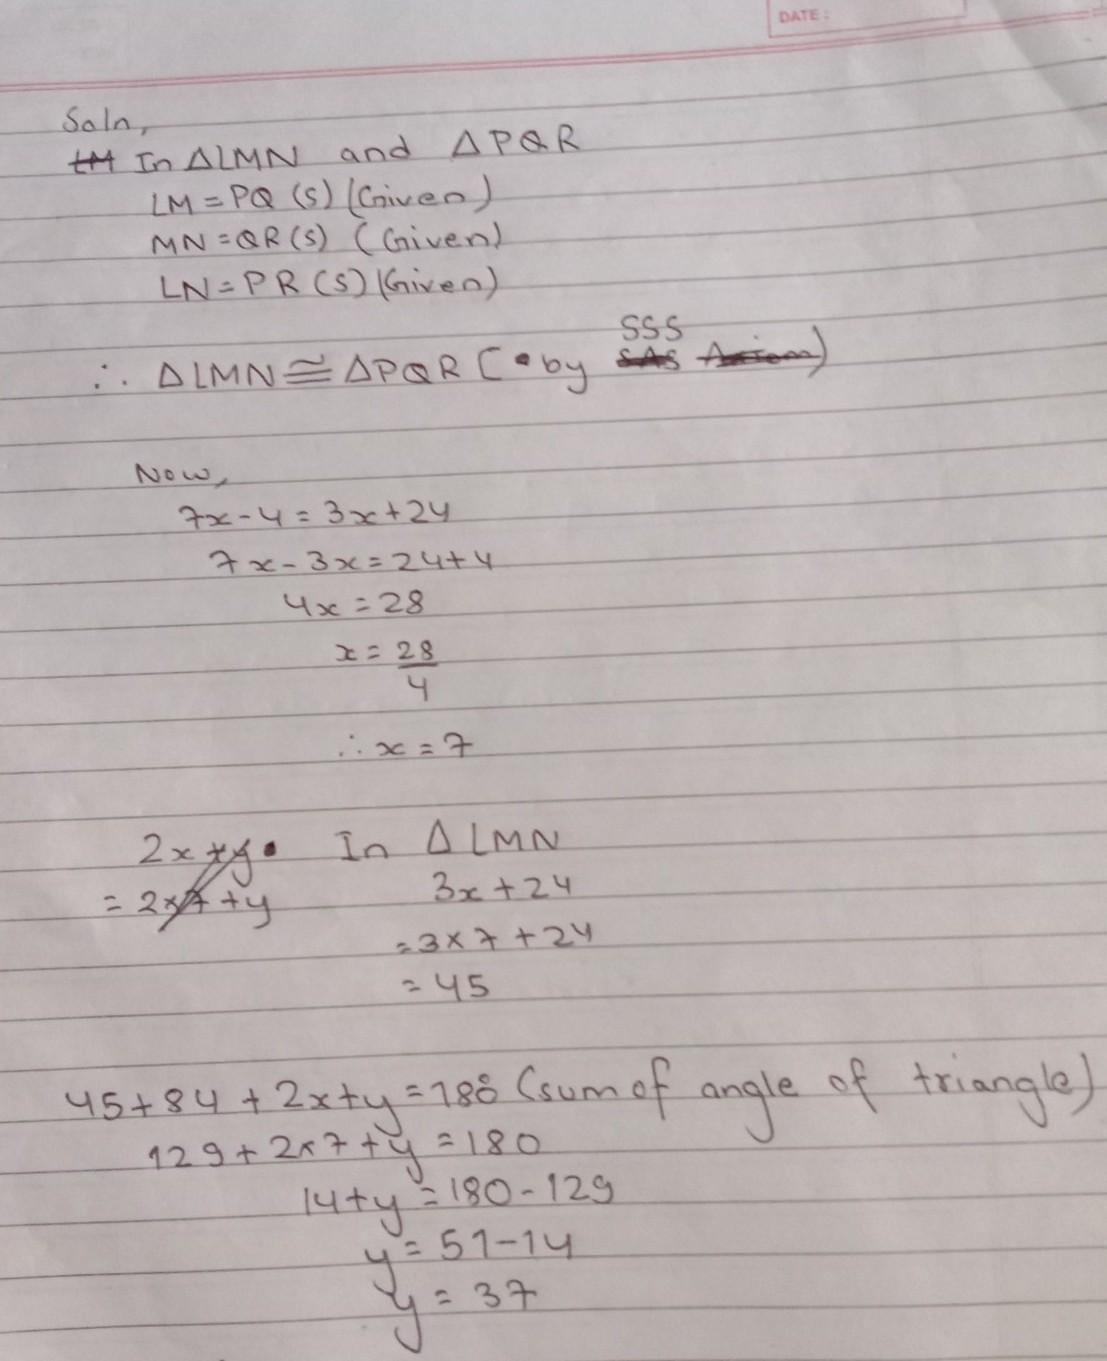 DATE:
Soln,
In ΔLMN and ΔPQR
LM = PQ (S) (Given)
MN = QR (S) (Given)
LN = PR (S) (Given)
∴ ΔLMN ≅ ΔPQR [ by SSS SAS Axiom)
Now,
7x - 4 = 3x + 24
7x - 3x = 24 + 4
4x = 28
x = 28/4
∴ x = 7
2x + y
= 2×7 + y
In Δ LMN
3x + 24
= 3 × 7 + 24
= 45
45 + 84 + 2x + y = 180° (sum of angle of triangle)
129 + 2×7 + y = 180
14 + y = 180 - 129
y = 51 - 14
y = 37